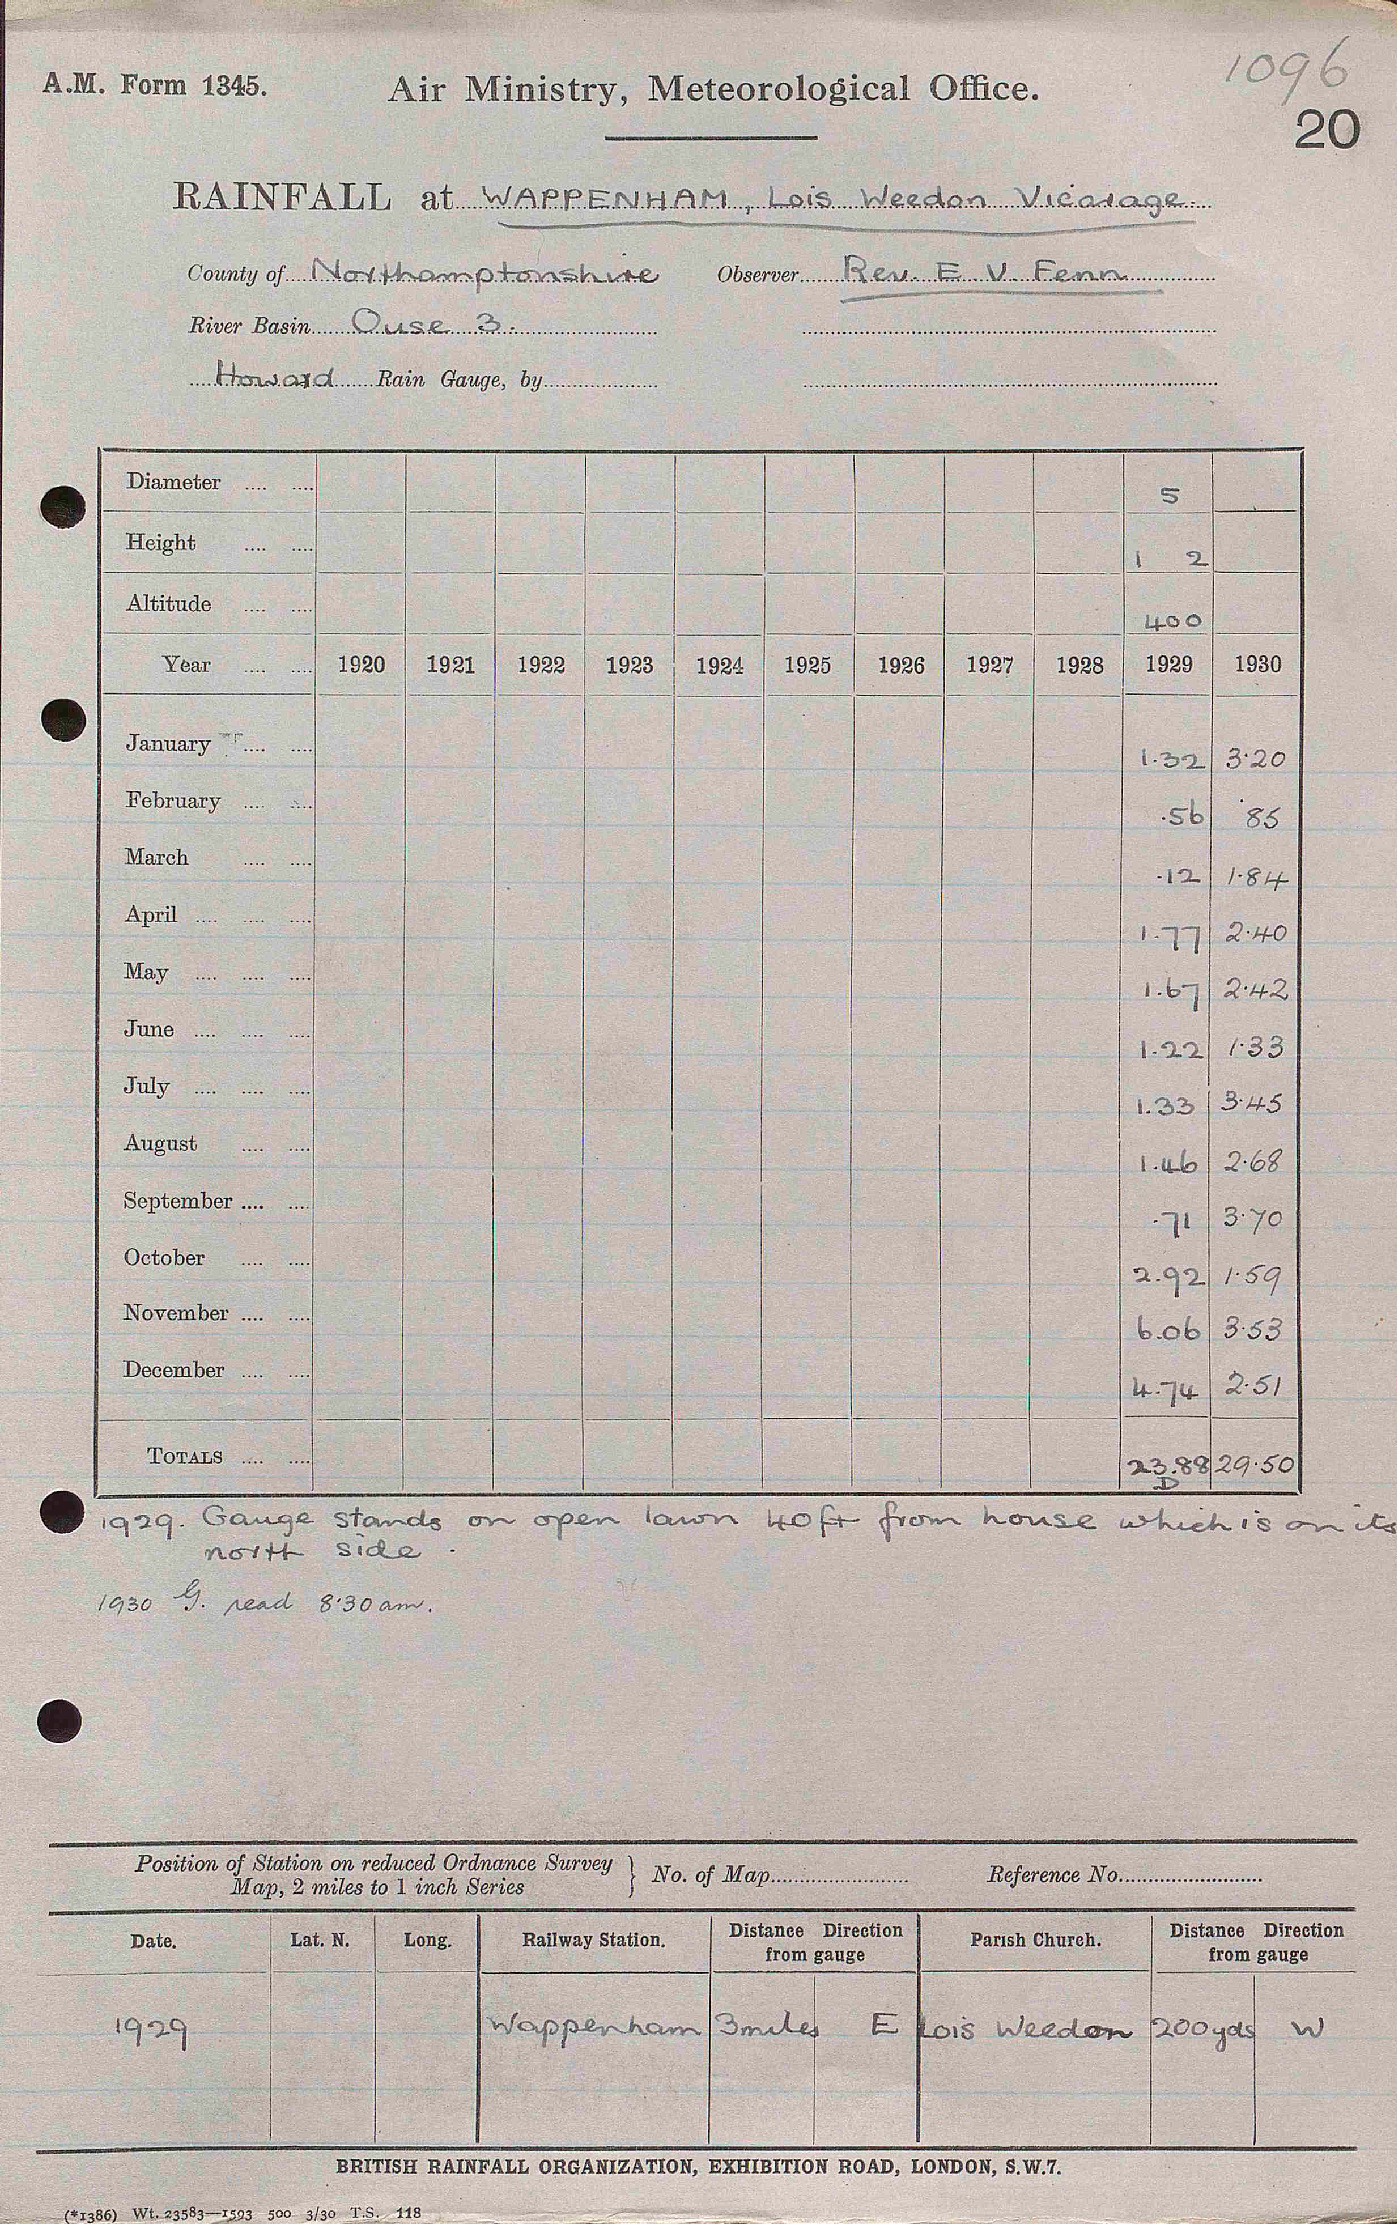 A.M. Form 1345.
Air Ministry, Meteorological Office.
1096
20
RAINFALL at WAPPENHAM, Lois Weedon Vicarage
County of Northamptonshire Observer Rev. E. V. Fenn
River Basin Ouse 3.
Howard Rain Gauge, by
Diameter 5
Height 1 2
Altitude 400
Year 1920 1921 1922 1923 1924 1925 1926 1927 1928 1929 1930
January 1.32 3.20
February .56 .85
March .12 1.84
April 1.77 2.40
May 1.67 2.42
June 1.22 1.33
July 1.33 3.45
August 1.46 2.68
September .71 3.70
October 2.92 1.59
November 6.06 3.53
December 4.74 2.51
TOTALS 23.88 29.50
D
1929. Gauge stands on open lawn 40ft from house which is on its
north side.
1930 G. read 8.30am.
Position of Station on reduced Ordnance Survey
Map, 2 miles to 1 inch Series } No. of Map Reference No.
Date. Lat. N. Long. Railway Station. Distance Direction from gauge Parish Church. Distance Direction from gauge
1929 Wappenham 3miles E Lois Weedon 200yds W
BRITISH RAINFALL ORGANIZATION, EXHIBITION ROAD, LONDON, S.W.7.
(*1386) Wt. 23583—1593 500 3/30 T.S. 118